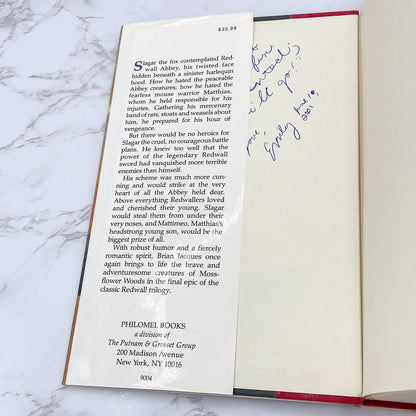 $22.99
Slagar the fox contemplated Red-
wall Abbey, his twisted face
hidden beneath a sinister harlequin
hood. How he hated the peaceable
Abbey creatures; how he hated the
fearless mouse warrior Matthias,
whom he held responsible for his
injuries. Gathering his mercenary
band of rats, stoats and weasels about
him, he prepared for his hour of
vengeance.
But there would be no heroics for
Slagar the cruel, no courageous battle
plans. He knew too well that the
power of the legendary Redwall
sword had vanquished more terrible
enemies than himself.
His scheme was much more cun-
ning and would strike at the very
heart of all the Abbey held dear.
Above everything Redwallers loved
and cherished their young. Slagar
would steal them from under their
very noses, and Mattimeo, Matthias's
headstrong young son, would be the
biggest prize of all.
With robust humor and a fiercely
romantic spirit, Brian Jacques once
again brings to life the brave and
adventuresome creatures of Moss-
flower Woods in the final epic of the
classic Redwall trilogy.
PHILOMEL BOOKS
a division of
The Putnam & Grosset Group
200 Madison Avenue
New York, NY 10016
9004
go!